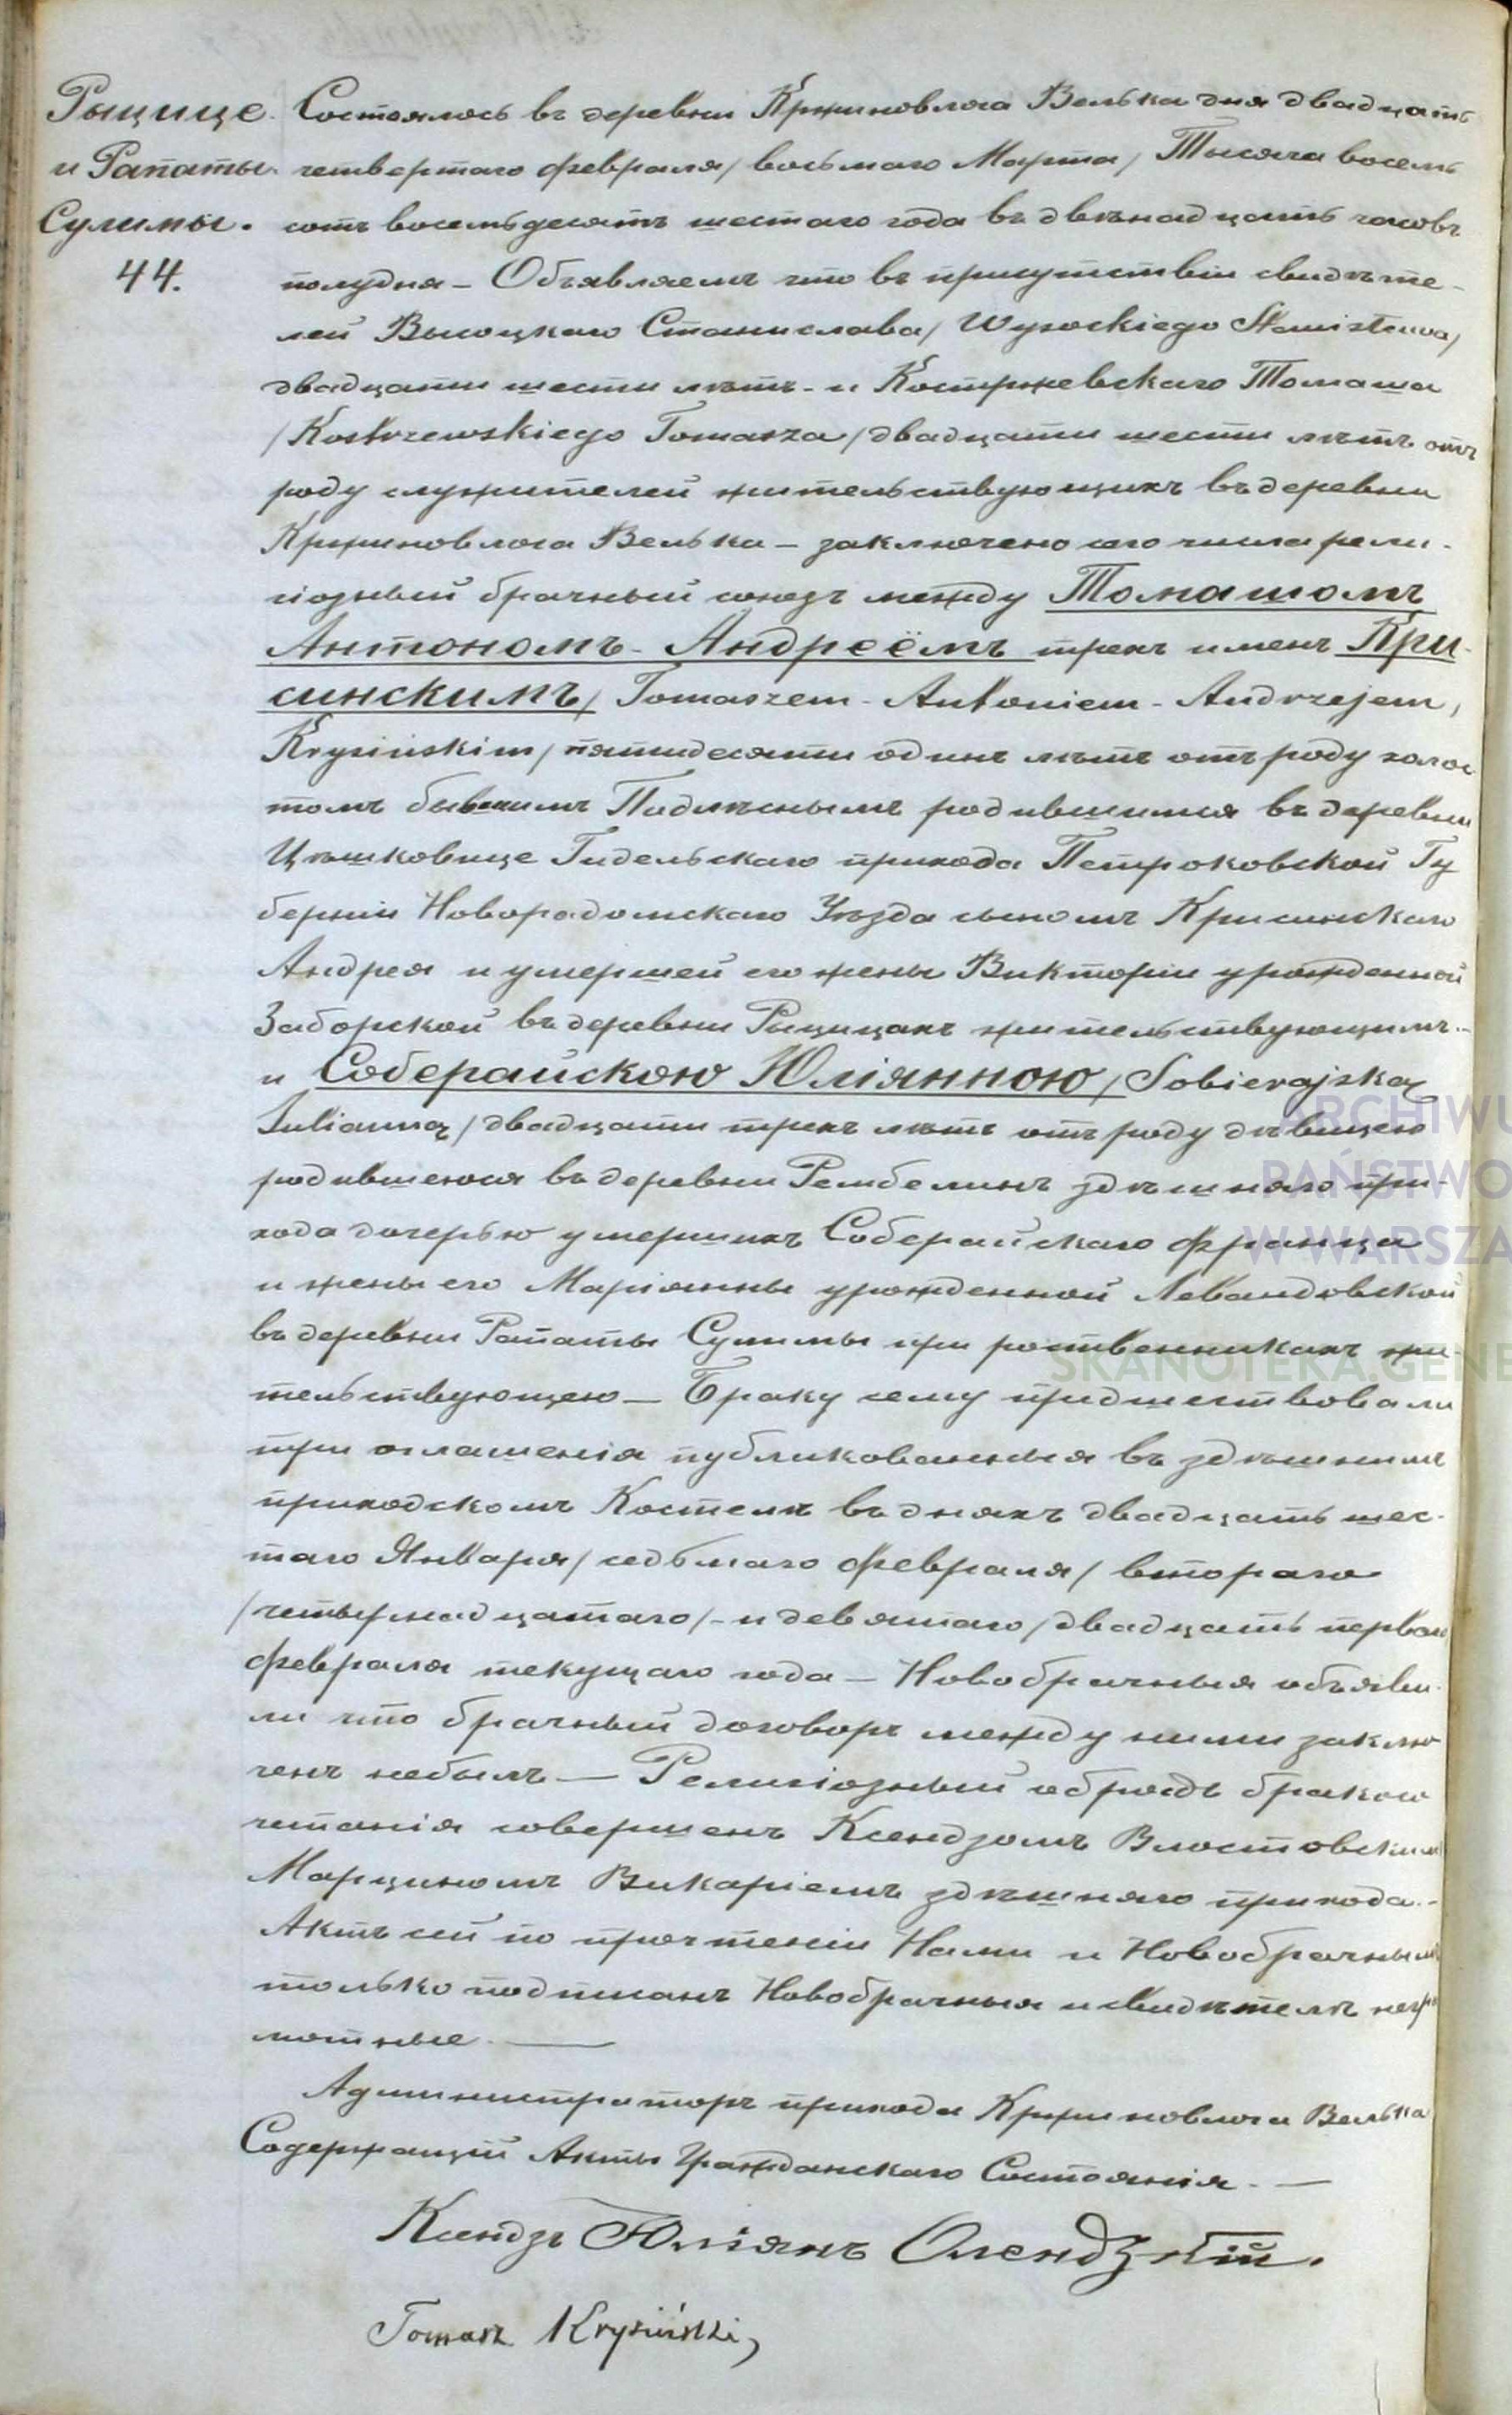 Рыцице
и Рапаты
Сулимы.
44.
Состоялось въ деревни Кржиновлога Велька дня двадцать
четвертаго февраля / восьмаго Марта / Тысяча восемь
сотъ восемьдесятъ шестаго года въ двѣнадцать часовъ
полудня – Объявляемъ что въ присутствіи свидѣте-
лей Высоцкаго Станислава / Wysockiego Stanisława /
двадцати шести лѣтъ – и Костржевскаго Томаша
/ Kostrzewskiego Tomasza / двадцати шести лѣтъ отъ
роду служителей жительствующихъ въ деревни
Кржиновлога Велька – заключено сего числа рели-
гіозный брачный союзъ между Томашомъ
Антономъ - Андреёмъ трехъ именъ Кри-
синскимъ / Tomaszem - Antoniem - Andrzejem,
Krysińskim / пятидесяти одинъ лѣтъ отъ роду холос
томъ бывшимъ Подлѣснымъ родившимся въ деревни
Цѣшковице Гидельскаго прихода Петроковской Гу
берніи Новорадомскаго Уѣзда сыномъ Крисинскаго
Андрея и умершей его жены Викторіи урожденной
Заборской въ деревни Рыцицахъ жительствующимъ. –
и Соберайскою Юліянною / Sobierajską
Julianną / двадцати трехъ лѣтъ отъ роду дѣвицею
родившеюся въ деревни Рембелинъ здѣшняго при-
хода дочерью умершихъ Соберайскаго Франца
и жены его Маріянны урожденной Левандовской
въ деревни Рапаты Сулимы при роственникахъ жи-
тельствующею – Браку сему придшествовали
три оглашенія публикованныя въ здѣшнимъ
приходскомъ Костелѣ въ дняхъ двадцать шес-
таго Января / седьмаго февраля / втораго
/ четырнадцатаго / - и девятаго / двадцать перваго
февраля текущаго года – Новобрачныя объяви-
ли что брачный договоръ между ними заклю
ченъ небылъ – Религіозный обрядъ бракосо
четанія совершенъ Ксендзомъ Влостовскимъ
Марциномъ Викаріемъ здѣшняго прихода. -
Актъ сей по прочтеніи Нами и Новобрачнымъ
только подписанъ Новобрачныя и свидѣтелѣ негра
мотные. —
Администраторъ прихода Кржиновлога Велька
Содержащій Акты Гражданскаго Состоянія. —
Ксендзъ Юліянъ Олендзкій.
Tomasz Krysiński,
ARCHIWU
PAŃSTWO
W WARSZA
SKANOTEKA.GENE